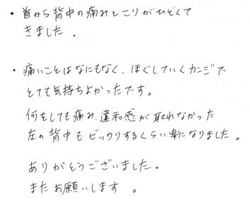 ・首から背中の痛みとこりがひどくて
きました.
・痛いことはなにもなく、ほぐしていくカンジで
とても気持ちよかったです。
何をしても痛み、違和感が取れなかった
左の背中もビックリするくらい楽になりました。
ありがとうございました。
またお願いします。